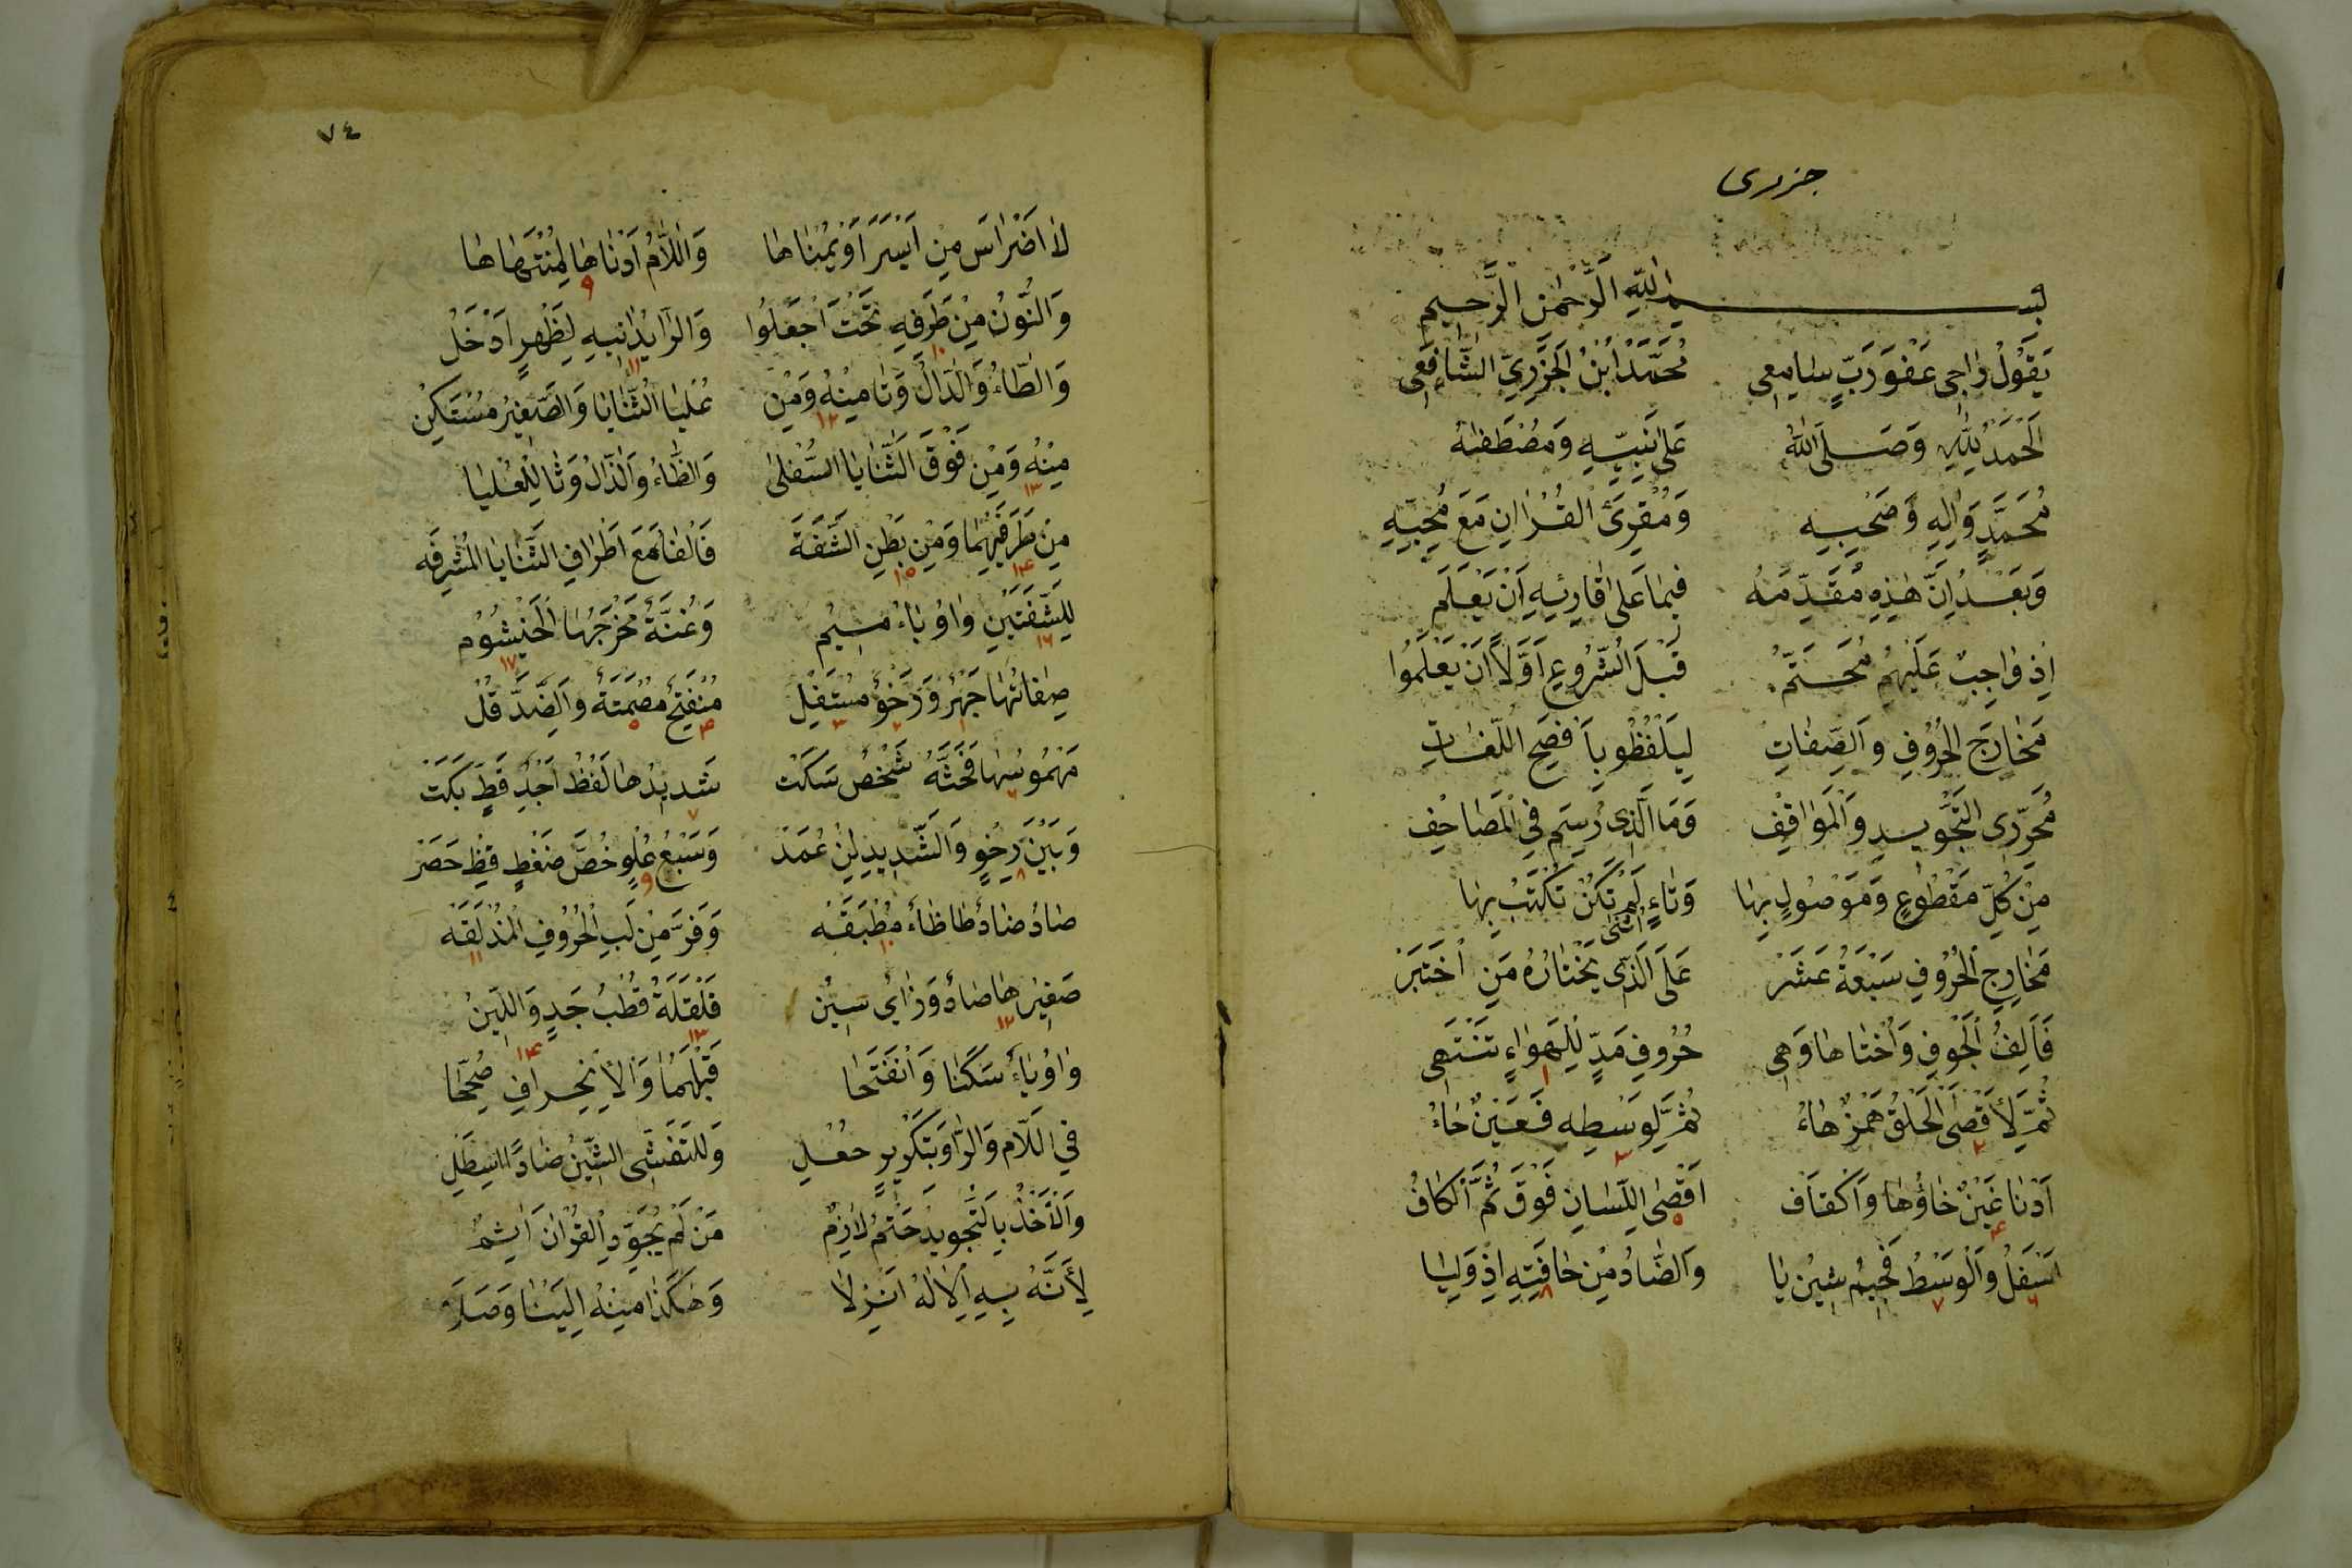 جزری
بسم الله الرحمن الرحيم
يَقُولُ رَاجِي عَفْوِ رَبٍّ سَامِعِي مُحَمَّدُ ابْنُ الْجَزَرِيِّ الشَّافِعِي
اَلْحَمْدُ لِلّٰهِ وَصَلَّى اللّٰهُ عَلٰى نَبِيِّهِ وَمُصْطَفٰهُ
مُحَمَّدٍ وَاٰلِهِ وَصَحْبِهِ وَمُقْرِئِ الْقُرْاٰنِ مَعْ مُحِبِّهِ
وَبَعْدُ اِنَّ هٰذِهِ مُقَدِّمَهْ فِيمَا عَلٰى قَارِئِهِ اَنْ يَعْلَمَ
اِذْ وَاجِبٌ عَلَيْهِمُ مُحَتَّمٌ قَبْلَ الشُّرُوعِ اَوَّلًا اَنْ يَعْلَمُوا
مَخَارِجَ الْحُرُوفِ وَالصِّفَاتِ لِيَلْفُظُوا بِاَفْصَحِ اللُّغَاتِ
مُحَرِّرِى التَّجْوِيدِ وَالْمَوَاقِفِ وَمَا الَّذِى رُسِمَ فِي الْمَصَاحِفِ
مِنْ كُلِّ مَقْطُوعٍ وَمَوْصُولٍ بِهَا وَتَاءِ اُنْثٰى لَمْ تَكُنْ تُكْتَبْ بِهَا
مَخَارِجِ الْحُرُوفِ سَبْعَةُ عَشَرْ عَلَى الَّذِى يَخْتَارُهُ مَنِ اخْتَبَرْ
فَاَلِفُ الْجَوْفِ وَاُخْتَاهَا وَهِى حُرُوفِ مَدٍّ لِلْهَوَاءِ تَنْتَهِى ١
ثُمَّ لِاَقْصَى الْحَلْقِ هَمْزٌ هَاءُ ٢ ثُمَّ لِوَسْطِهِ فَعَيْنٌ حَاءُ ٣
اَدْنَا غَيْنٌ خَاؤُهَا وَالْقَافْ ٤ اَقْصَى اللِّسَانِ فَوْقَ ثُمَّ الْكَافُ ٥
اَسْفَلُ وَالْوَسْطُ فَجِيمُ شِينُ يَا ٦ ٧ وَالضَّادُ مِنْ حَافَتِهِ اِذْ وَلِيَا ٨
٧٤
لَاضْرَاسَ مِنْ اَيْسَرَ اَوْ يُمْنَاهَا وَاللَّامُ اَدْنَاهَا لِمُنْتَهَاهَا ٩
وَالنُّونُ مِنْ طَرَفِهِ تَحْتَ اجْعَلُوا ١٠ وَالرَّا يُدَانِيهِ لِظَهْرٍ اَدْخَلُ ١١
وَالطَّاءُ وَالدَّالُ وَتَا مِنْهُ وَمِنْ ١٢ عُلْيَا الثَّنَايَا وَالصَّفِيرُ مُسْتَكِنْ
مِنْهُ وَمِنْ فَوْقَ الثَّنَايَا السُّفْلٰى ١٣ وَالظَّاءُ وَالذَّالُ وَثَا لِلْعُلْيَا
مِنْ طَرَفَيْهِمَا وَمِنْ بَطْنِ الشَّفَةَ ١٤ ١٥ فَالْفَا مَعَ اَطْرَافِ الثَّنَايَا الْمُشْرِفَه
لِلشَّفَتَيْنِ وَاوُ بَاءُ مِيمُ ١٦ وَغُنَّةٌ مَخْرَجُهَا الْخَيْشُومُ ١٧
صِفَاتُهَا جَهْرٌ وَرَخْوٌ مُسْتَفِلْ ١ ٢ ٣ مُنْفَتِحٌ مُصْمَتَةٌ وَالضِّدَّ قُلْ ٤ ٥
مَهْمُوسُهَا فَحَثَّهُ شَخْصٌ سَكَتْ ٦ شَدِيدُهَا لَفْظُ اَجِدُ قَطٍ بَكَتْ ٧
وَبَيْنَ رِخْوٍ وَالشَّدِيدِ لِنْ عُمَدْ ٨ وَسَبْعُ عُلْوٍ خُصَّ ضَغْطٍ قِظْ حَصَرْ ٩
صَادُ ضَادٌ طَا ظَاءٌ مُطْبَقَهْ ١٠ وَفَرَّ مِنْ لُبِّ الْحُرُوفِ الْمُذْلَقَهْ ١١
صَفِيرُهَا صَادٌ وَزَاىٌ سِينُ ١٢ قَلْقَلَةٌ قُطْبُ جَدٍ وَاللِّينُ ١٣ ١٤
وَاوُ يَاءٌ سَكَنَا وَانْفَتَحَا قَبْلَهُمَا وَالْاِنْحِرَافِ صُحِّحَا
فِي اللَّامِ وَالرَّا وَبِتَكْرِيرٍ جُعِلِ وَلِلتَّفَشِّى الشِّينُ ضَادًا اسْتَطِلِ
وَالْاَخْذُ بِالتَّجْوِيدِ حَتْمٌ لَازِمٌ مَنْ لَمْ يُجَوِّدِ الْقُرْاٰنَ اٰثِمُ
لِاَنَّهُ بِهِ الْاِلٰهُ اَنْزَلَا وَهٰكَذَا مِنْهُ اِلَيْنَا وَصَلَا